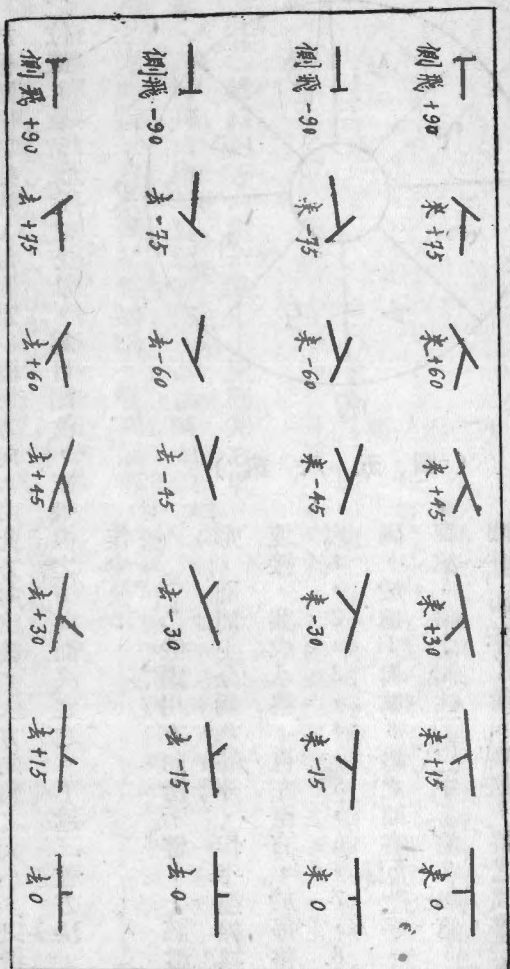 側飛 +90 来 +75 来+60 来 +45 来+30 来+15 来 0
側飛 -90 来 -75 来 -60 来 -45 来 -30 来 -15 来 0
側飛 -90 去 -75 去 -60 去 -45 去 -30 去 -15 去 0
側飛 +90 去 +75 去+60 去+45 去+30 去+15 去 0